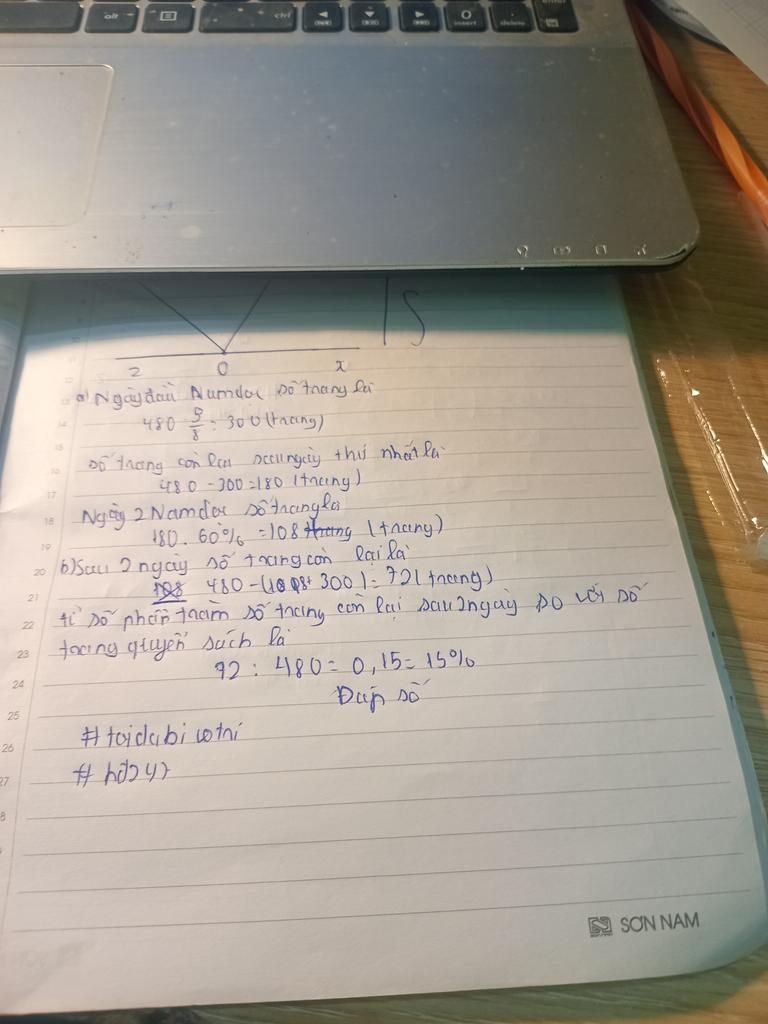 alt
ctrl
insert
delete
enter
z O x
a) Ngày đầu Nam đọc số trang là
480 . 5/8 = 300 (trang)
số trang còn lại sau ngày thứ nhất là
480 - 300 = 180 (trang)
Ngày 2 Nam đọc số trang là
180. 60% = 108 (trang)
b) Sau 2 ngày số trang còn lại là
480 - (108 + 300) = 72 (trang)
tỉ số phần trăm số trang còn lại sau 2 ngày so với số
trang quyển sách là
72 : 480 = 0,15 = 15%
Đáp số
11
12
13
14
15
16
17
18
19
20
21
22
23
24
25
26
27
SƠN NAM